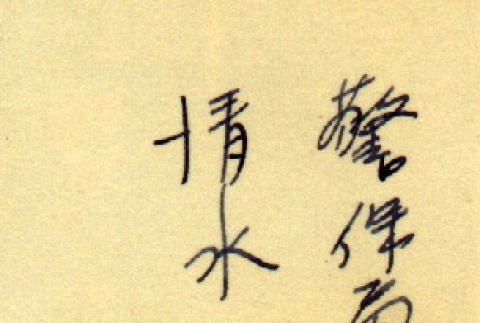 警保局
清水